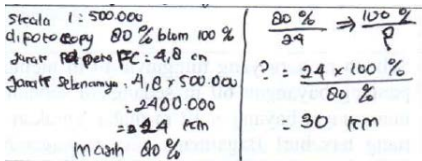 skala 1 : 500.000
dipotocopy 80% blom 100%
Jarak pd peta FC = 4,8 cm
Jarak sebenarnya = 4,8 x 500.000
= 2400.000
= 24 km
masih 80%
80% ⇒ 100%
24 P
= 24 x 100%
80%
= 30 km